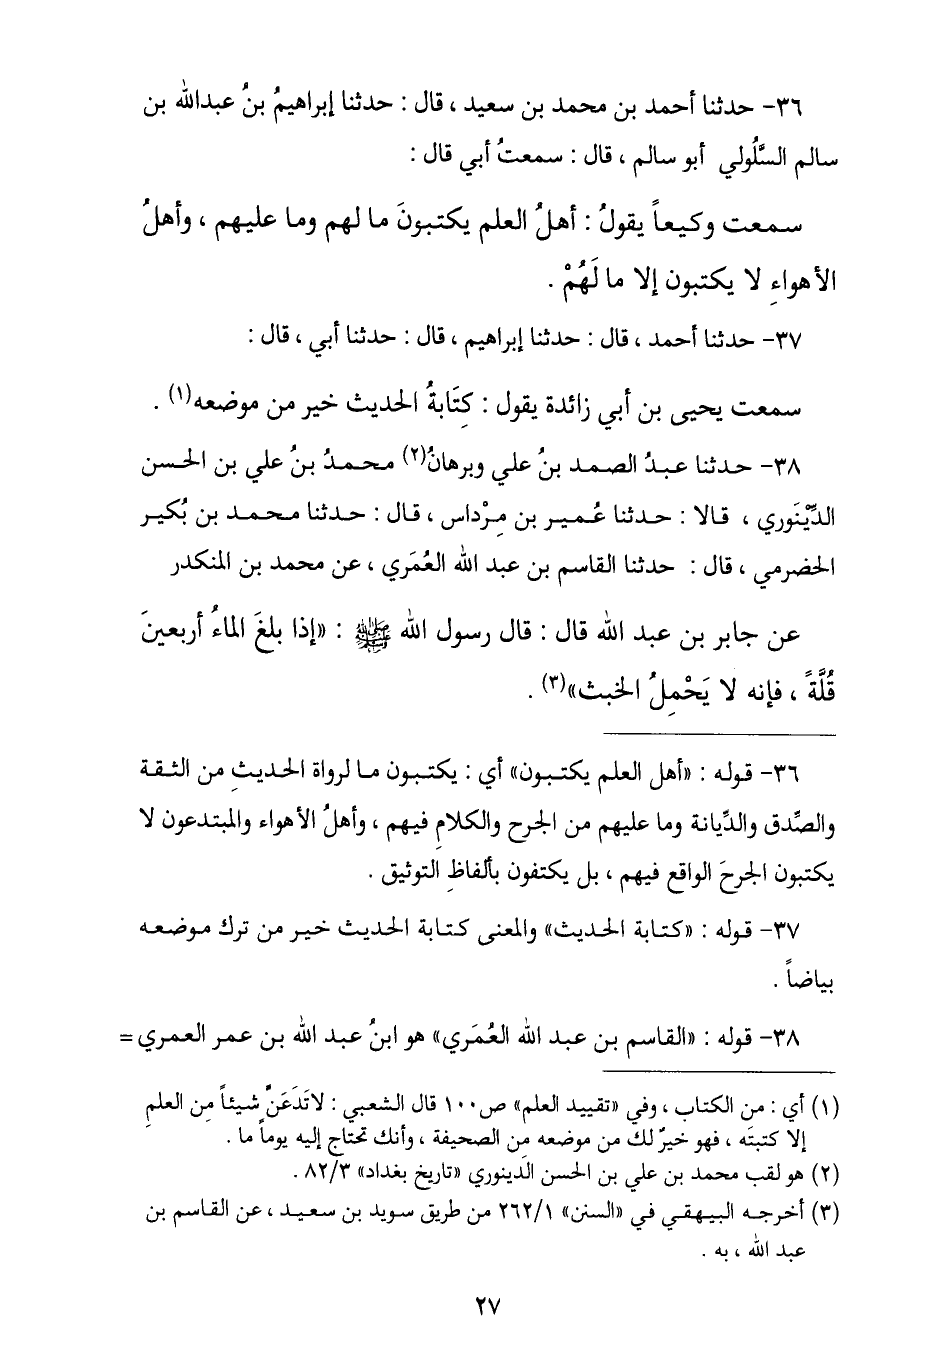 ٣٦- حدثنا أحمد بن محمد بن سعيد ، قال : حدثنا إبراهيمُ بنُ عبدالله بن
سالم السَّلُولي أبو سالم ، قال : سمعتُ أبي قال :
سمعت وكيعاً يقولُ : أهلُ العلم يكتبونَ ما لهم وما عليهم ، وأهلُ
الأهواءِ لا يكتبون إلا ما لَهُمْ .
٣٧- حدثنا أحمد ، قال : حدثنا إبراهيم ، قال : حدثنا أبي ، قال :
سمعت يحيى بن أبي زائدة يقول : كِتَابةُ الحديث خير من موضعه(١) .
٣٨- حدثنا عبدُ الصمد بنُ علي وبرهانُ(٢) محمدُ بنُ علي بن الحسن
الدِّيْنَوري ، قالا : حدثنا عُمير بن مِرْداس ، قال : حدثنا محمد بن بُكير
الحضرمي ، قال : حدثنا القاسم بن عبد الله العُمَري ، عن محمد بن المنكدر
عن جابر بن عبد الله قال : قال رسول الله ﷺ : «إذا بلغَ الماءُ أربعينَ
قُلَّةً ، فإنه لا يَحْمِلُ الخبث»(٣) .
٣٦- قوله : «أهل العلم يكتبون» أي : يكتبون ما لرواة الحديثِ من الثقة
والصِّدق والدِّيانة وما عليهم من الجرح والكلامِ فيهم ، وأهلُ الأهواء والمبتدعون لا
يكتبون الجرحَ الواقع فيهم ، بل يكتفون بألفاظِ التوثيق .
٣٧- قوله : «كتابة الحديث» والمعنى كتابة الحديث خير من ترك موضعه
بياضاً .
٣٨- قوله : «القاسم بن عبد الله العُمَري» هو ابنُ عبد الله بن عمر العمري =
(١) أي : من الكتاب ، وفي «تقييد العلم» ص١٠٠ قال الشعبي : لاتَدَعَنَّ شيئاً مِن العلمِ
إلا كتبتَه ، فهو خيرٌ لك من موضعه مِن الصحيفة ، وأنك تحتاج إليه يوماً ما .
(٢) هو لقب محمد بن علي بن الحسن الدينوري «تاريخ بغداد» ٨٢/٣ .
(٣) أخرجه البيهقي في «السنن» ٢٦٢/١ من طريق سويد بن سعيد ، عن القاسم بن
عبد الله ، به .
٢٧